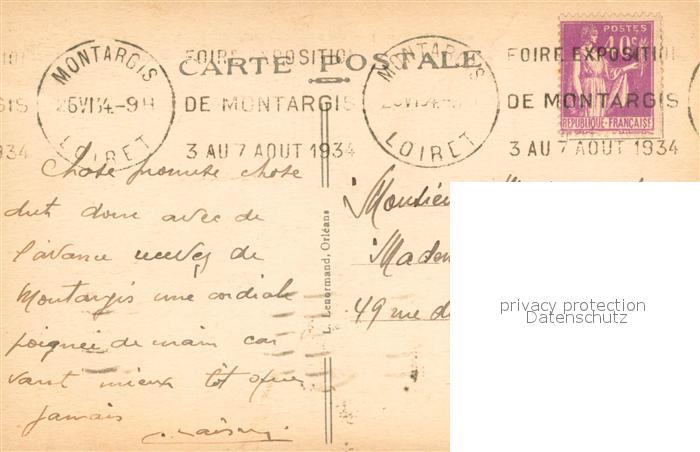 MONTARGIS
26 VI 34-9H
LOIRET
FOIRE EXPOSITION
DE MONTARGIS
3 AU 7 AOUT 1934
CARTE POSTALE
MONTARGIS
LOIRET
POSTES
40c
REPUBLIQUE-FRANÇAISE
FOIRE EXPOSITION
DE MONTARGIS
3 AU 7 AOUT 1934
GIS
934
Chose promise chose
due donc avec de
l'avance recevez de
Montargis une cordiale
poignée de main car
vaut mieux tôt que
jamais
L. Lenormand, Orléans
Monsieur
Madem
49 rue d
privacy protection
Datenschutz